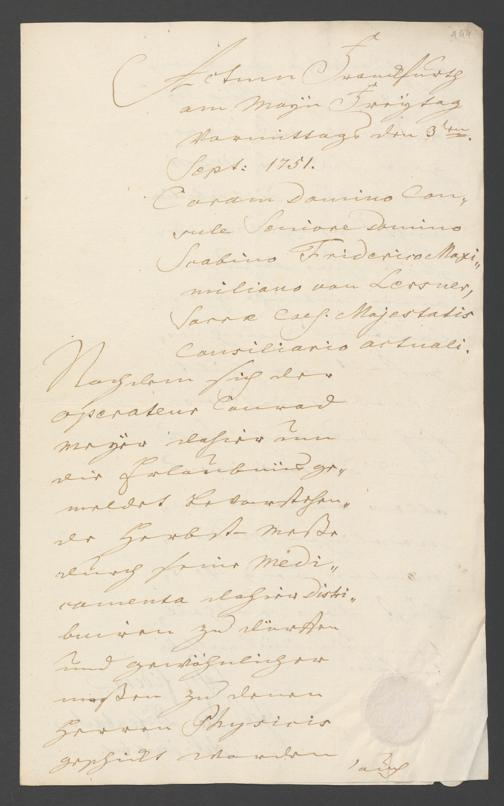 Actum Franckfurth
am Mayn Freytag
Vormittags den 3ten
Sept: 1751.
Coram Domino Con„
sule Seniore Domino
Scabino Friderico Maxi„
miliano von Lersner,
Sacræ Caes: Majestatis
Consiliario actuali.
Nachdem sich der
operateur Conrad
Meyer dahier um
die Erlaubnüs ge„
meldet bevorstehen„
de Herbst-Meße
durch seine Medi„
camenta dahier distri„
buiren zu dürffen
und gewöhnlicher
maßen zu denen
Herren Physicis
geschickt worden
, auch